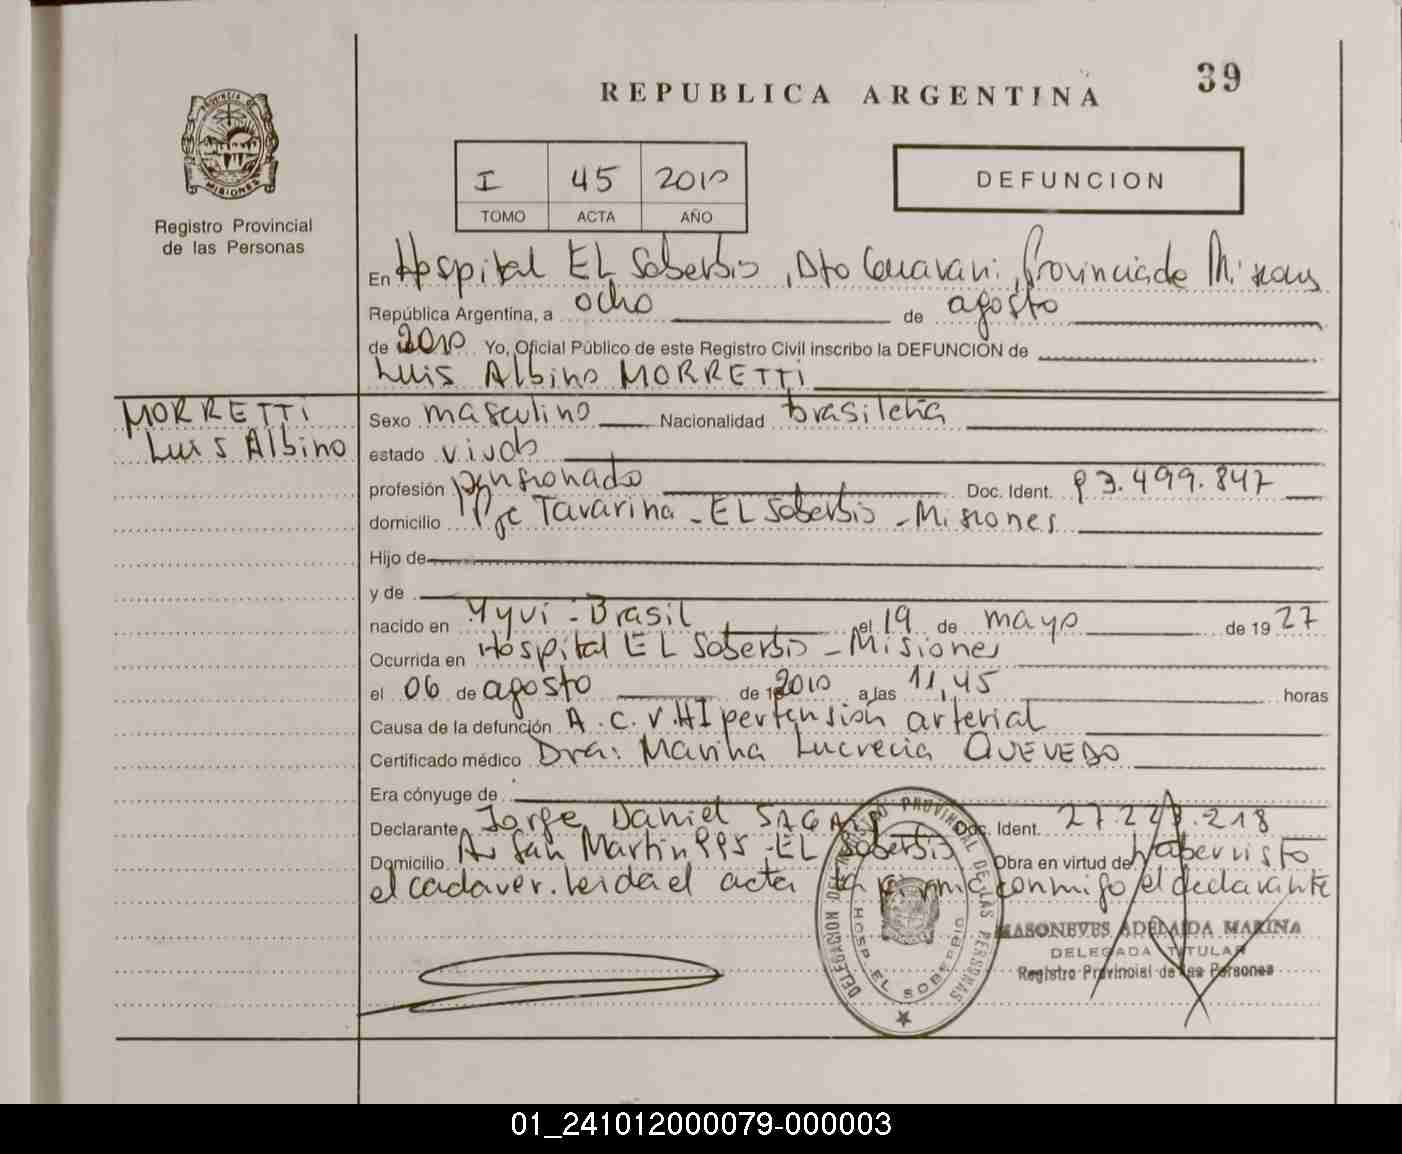 39
REPUBLICA ARGENTINA
I 45 2010
TOMO ACTA AÑO
DEFUNCION
Registro Provincial
de las Personas
En Hospital EL Soberbio, Dto Guarani, Provincia de Misiones
República Argentina, a ocho de agosto
de 2010 Yo, Oficial Público de este Registro Civil inscribo la DEFUNCION de
Luis Albino MORRETTi
MORRETTi
Luis Albino
Sexo masculino Nacionalidad brasileña
estado viudo
profesión pensionado Doc. Ident. 93.499.847
domicilio Pje Tavarina - EL Soberbio - Misiones
Hijo de
y de
nacido en Yyui - Brasil el 19 de mayo de 1927
Ocurrida en Hospital EL Soberbio - Misiones
el 06 de agosto de 2010 a las 11,45 horas
Causa de la defunción A.C.V. HIpertensión arterial
Certificado médico Dra: Marina Lucrecia QUEVEDO
Era cónyuge de
Declarante Jorge Daniel Doc. Ident.
Domicilio Av San Martin 995 - EL Soberbio Obra en virtud de haber visto
el cadaver. Leida el acta la firma conmigo el declarante
DELEGACION DEL REGISTRO PROVINCIAL DE LAS PERSONAS
HOSP. EL SOBERBIO
MASONEVES ADELAIDA MARINA
DELEGADA TITULAR
Registro Provincial de las Personas
01_241012000079-000003